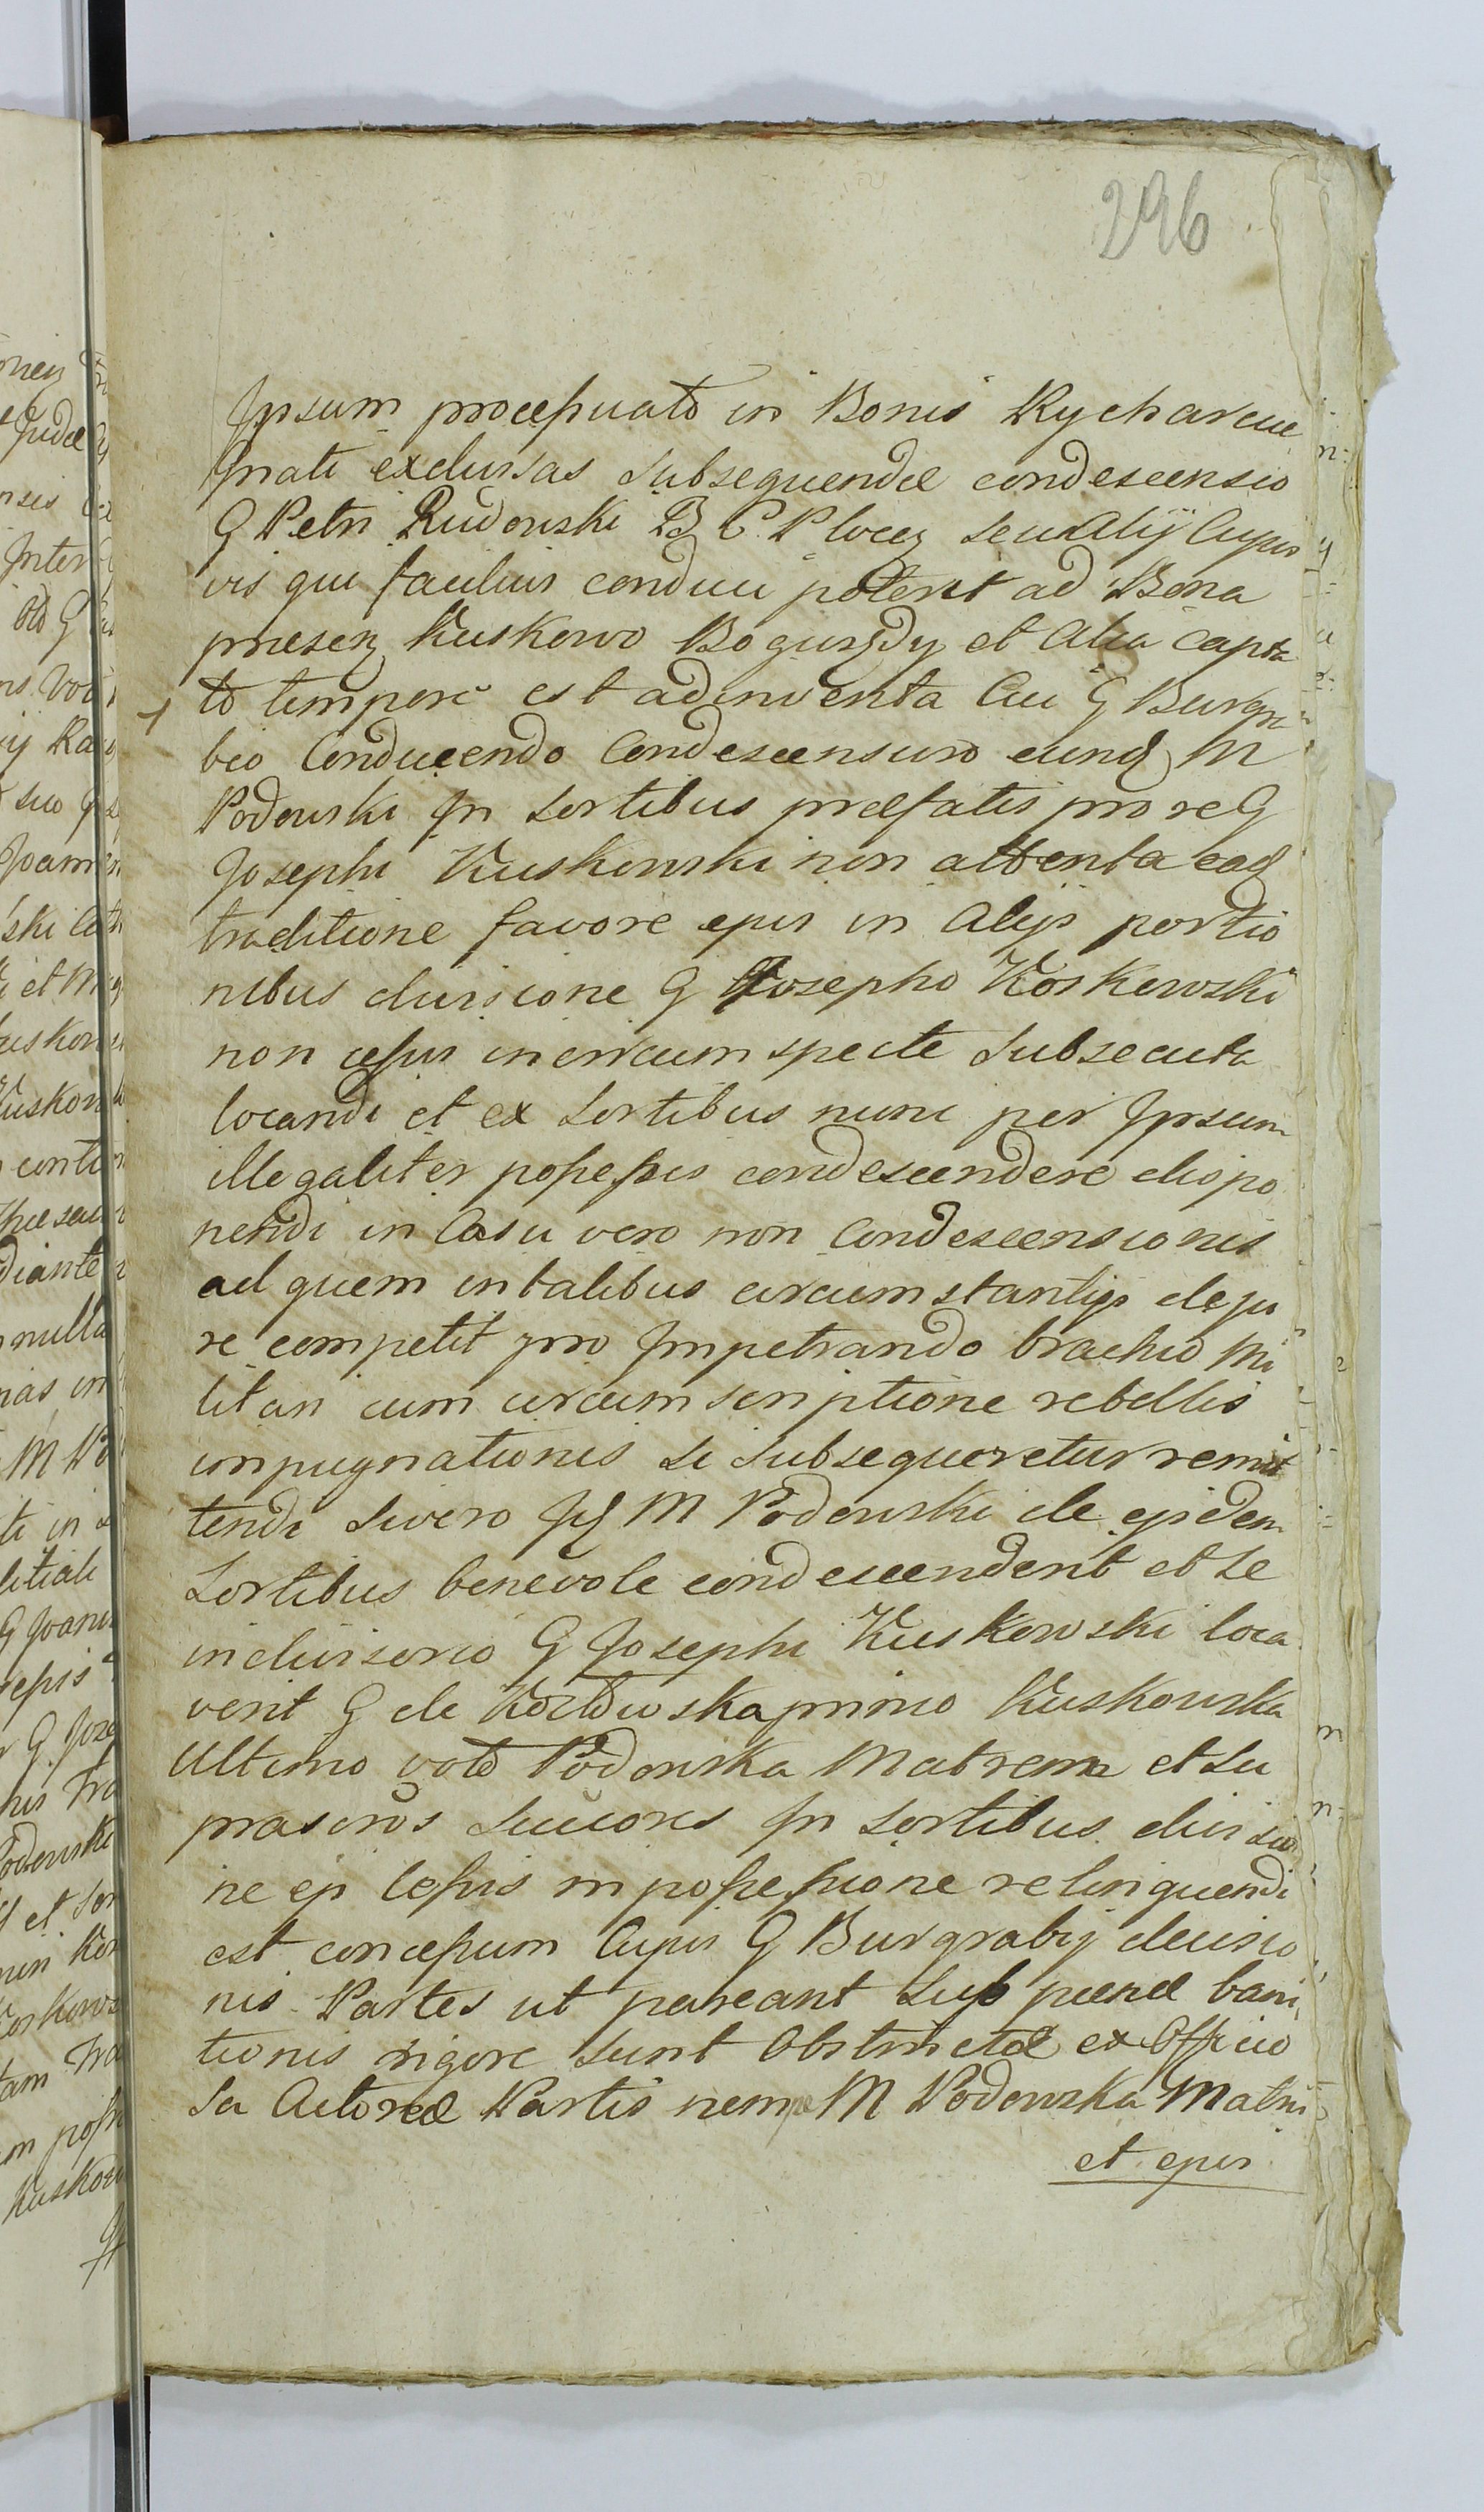 296
Ipsum procepuato in Bonis Rycharcie
Gnati exclusas subsequendæ condescensio
G Petri Rudowski B C Plocen seu Alij Cujus
vis qui facilius conduci poterit ad Bona
præsen Kuskowo Bogurzdy et Alia capta
to tempore est adinventa Cui G Burgra
bio Conducendo Condescensuro eund M
Podowski In Sortibus præfatis pro re G
Josephi Kuskowski non attenta ead
traditione favore ejus in Alijs portio
nibus divisione G Josepho Koskowski
non cessus incircumspecte subsecuta
locandi et ex Sortibus nunc per Ipsum
illegaliter possessis condescendere dispo
nendi in Casu vero non Condescensionis
ad quem in talibus circumstantijs de ju
re competit pro Impetrando brachio Mi
litari cum circumscriptione rebellis
impugnationis si subsequeretur remit
tendi Si vero Id M Podowski de ejsdem
Sortibus benevole condescenderit et se
in divisorio G Josephi Kuskowski loca
verit G de Kozłowska primo Kuskowska
Ultimo voto Podowska Matrem et su
prascros Succores In Sortibus divisio
ne ej cessis in possessione relinquendi
est concessum Cujus G Burgrabij decisio
nis Partes ut pareant sub pœnæ bani
tionis rigore sunt Obstrictæ ex Officio
Sa Actoreæ Partis nempe M Podowska Matris
et ejus